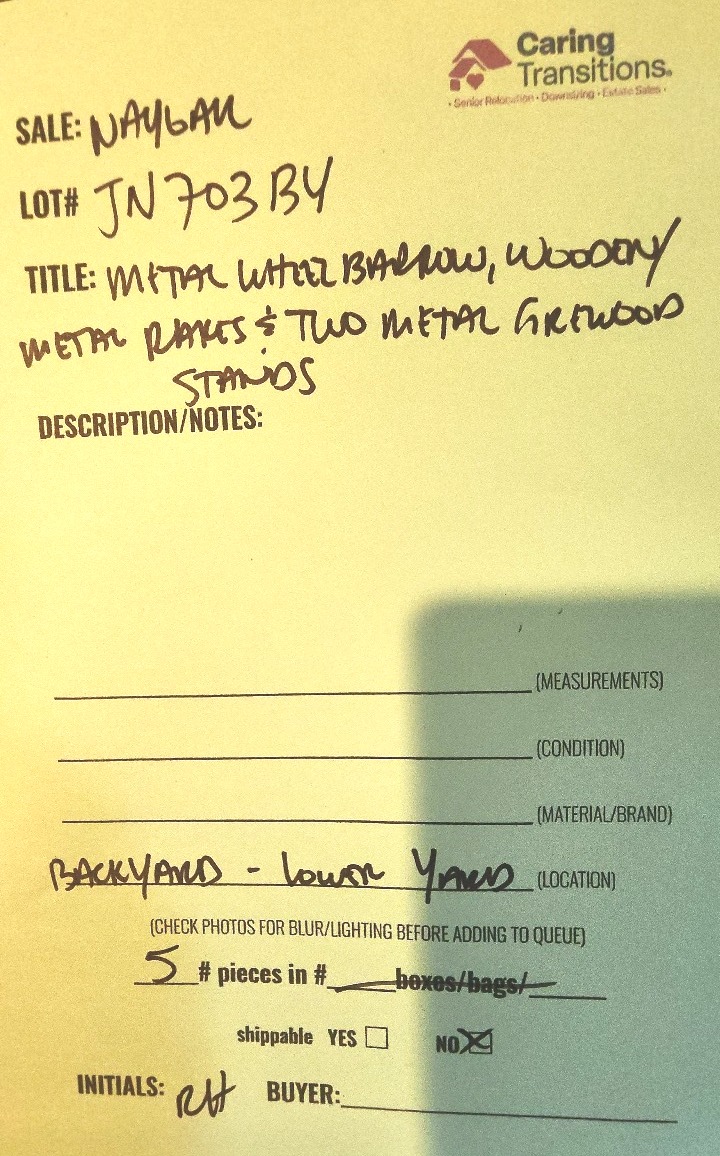 Caring
Transitions.
• Senior Relocation • Downsizing • Estate Sales •
SALE: NAYGAR
LOT# JN703BY
TITLE: METAL WHEELBARROW, WOODEN/
METAL RAKES & TWO METAL FIREWOOD
STANDS
DESCRIPTION/NOTES:
(MEASUREMENTS)
(CONDITION)
(MATERIAL/BRAND)
BACKYARD - LOWER YARD (LOCATION)
(CHECK PHOTOS FOR BLUR/LIGHTING BEFORE ADDING TO QUEUE)
5 # pieces in # boxes/bags/
shippable YES NO
INITIALS: RH BUYER: